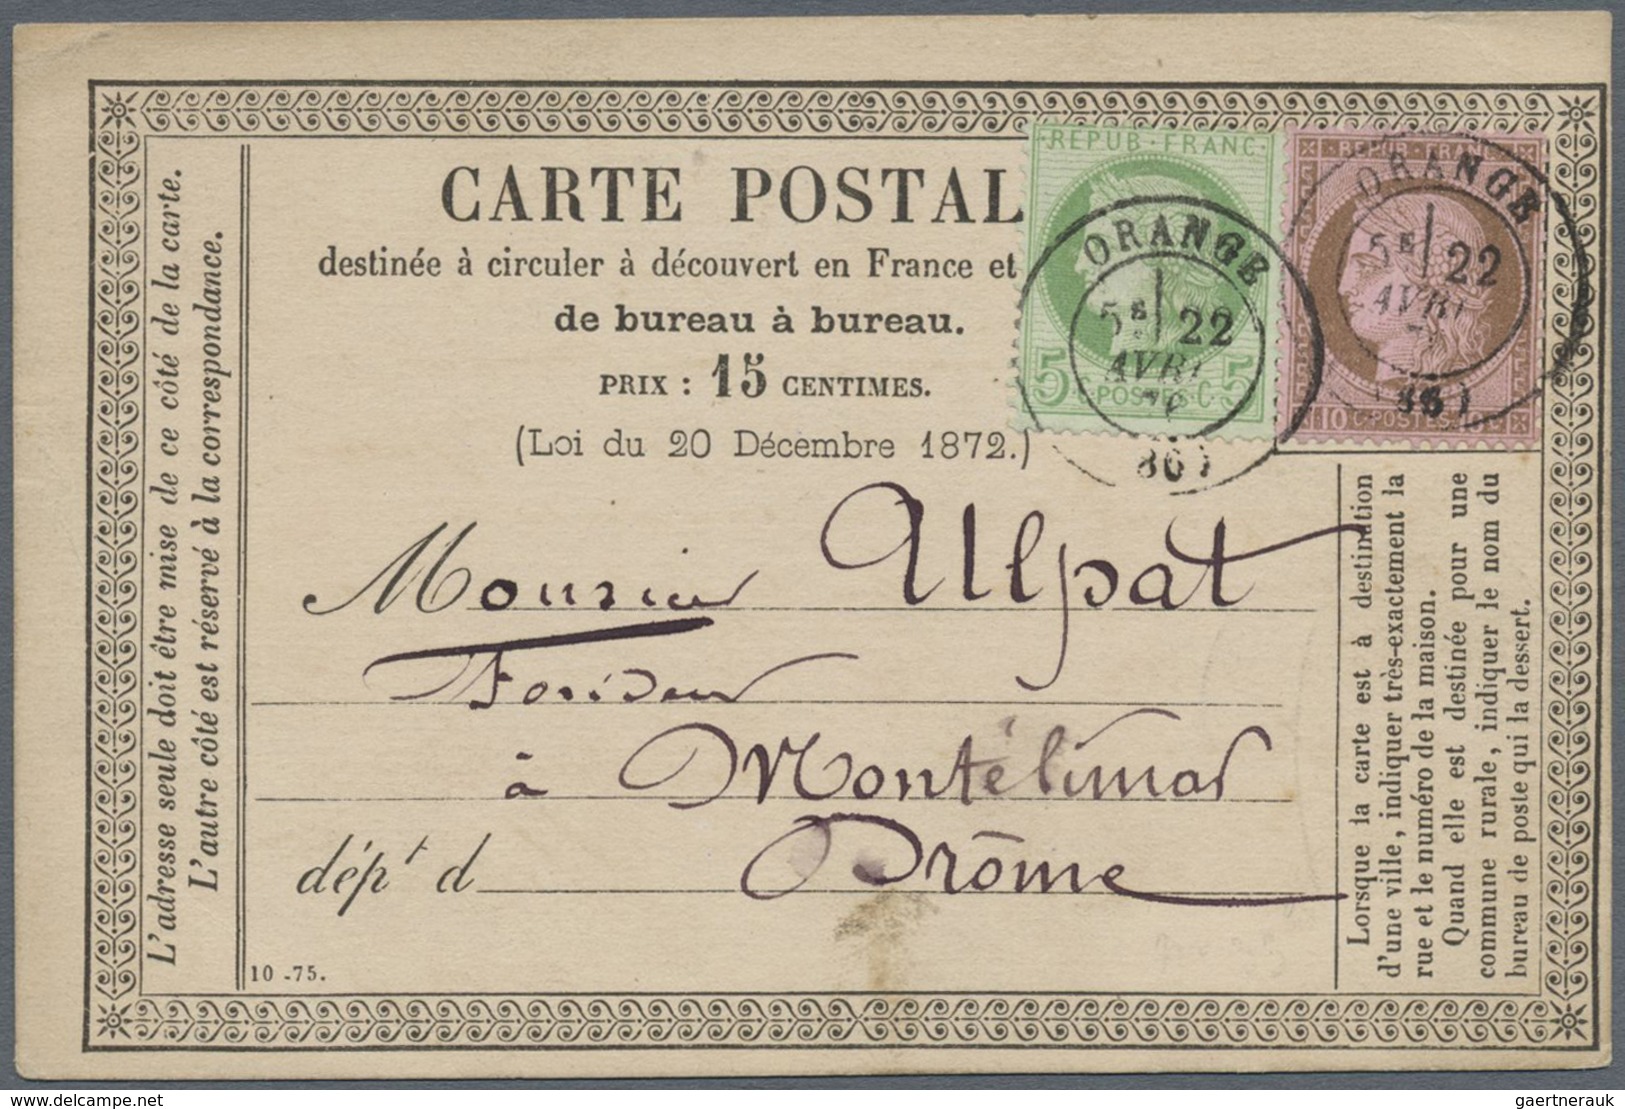 CARTE POSTAL
destinée à circuler à découvert en France et
de bureau à bureau.
PRIX : 15 CENTIMES.
(Loi du 20 Décembre 1872.)
REPUB·FRANC·
5 C·POSTES·C·5
ORANGE
5E 22
AVRI
76
(86)
REPUB·FRANC
10 C·POSTES·10 C
ORANGE
5E 22
AVRI
7
(86)
L'adresse seule doit être mise de ce côté de la carte.
L'autre côté est réservé à la correspondance.
Monsieur Ulpat
à Montélimar
dépt d Drôme
10 -75.
Lorsque la carte est à destination
d'une ville, indiquer très-exactement la
rue et le numéro de la maison.
Quand elle est destinée pour une
commune rurale, indiquer le nom du
bureau de poste qui la dessert.
delcampe.net
gaertnerauk